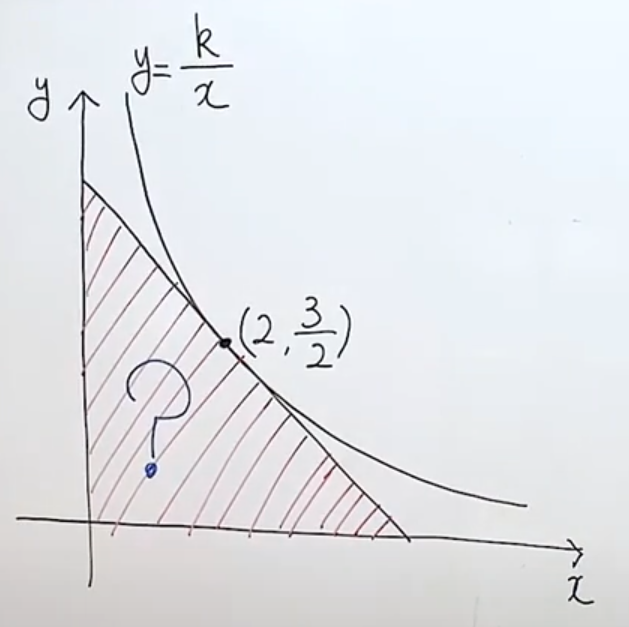 y=k/x
y
(2, 3/2)
?
x